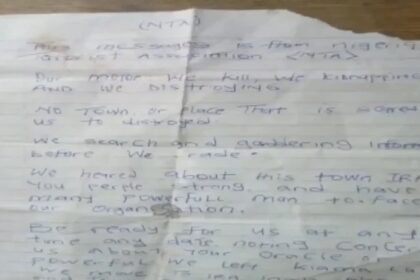 (NTA)
This message is from Nigeria
Association (NTA)
Our motor we kill, we kidnapping
AND we DISTROYING
No Town, or place That is scared
us to distroyed.
we search and gaddering inform
before we rade.
We heared about this town IRA
You people strong, and have
many powerfull man to face
our organ tion.
Be ready for us at any
time any date noting Concer
us about your oracle
powerful we left
we move